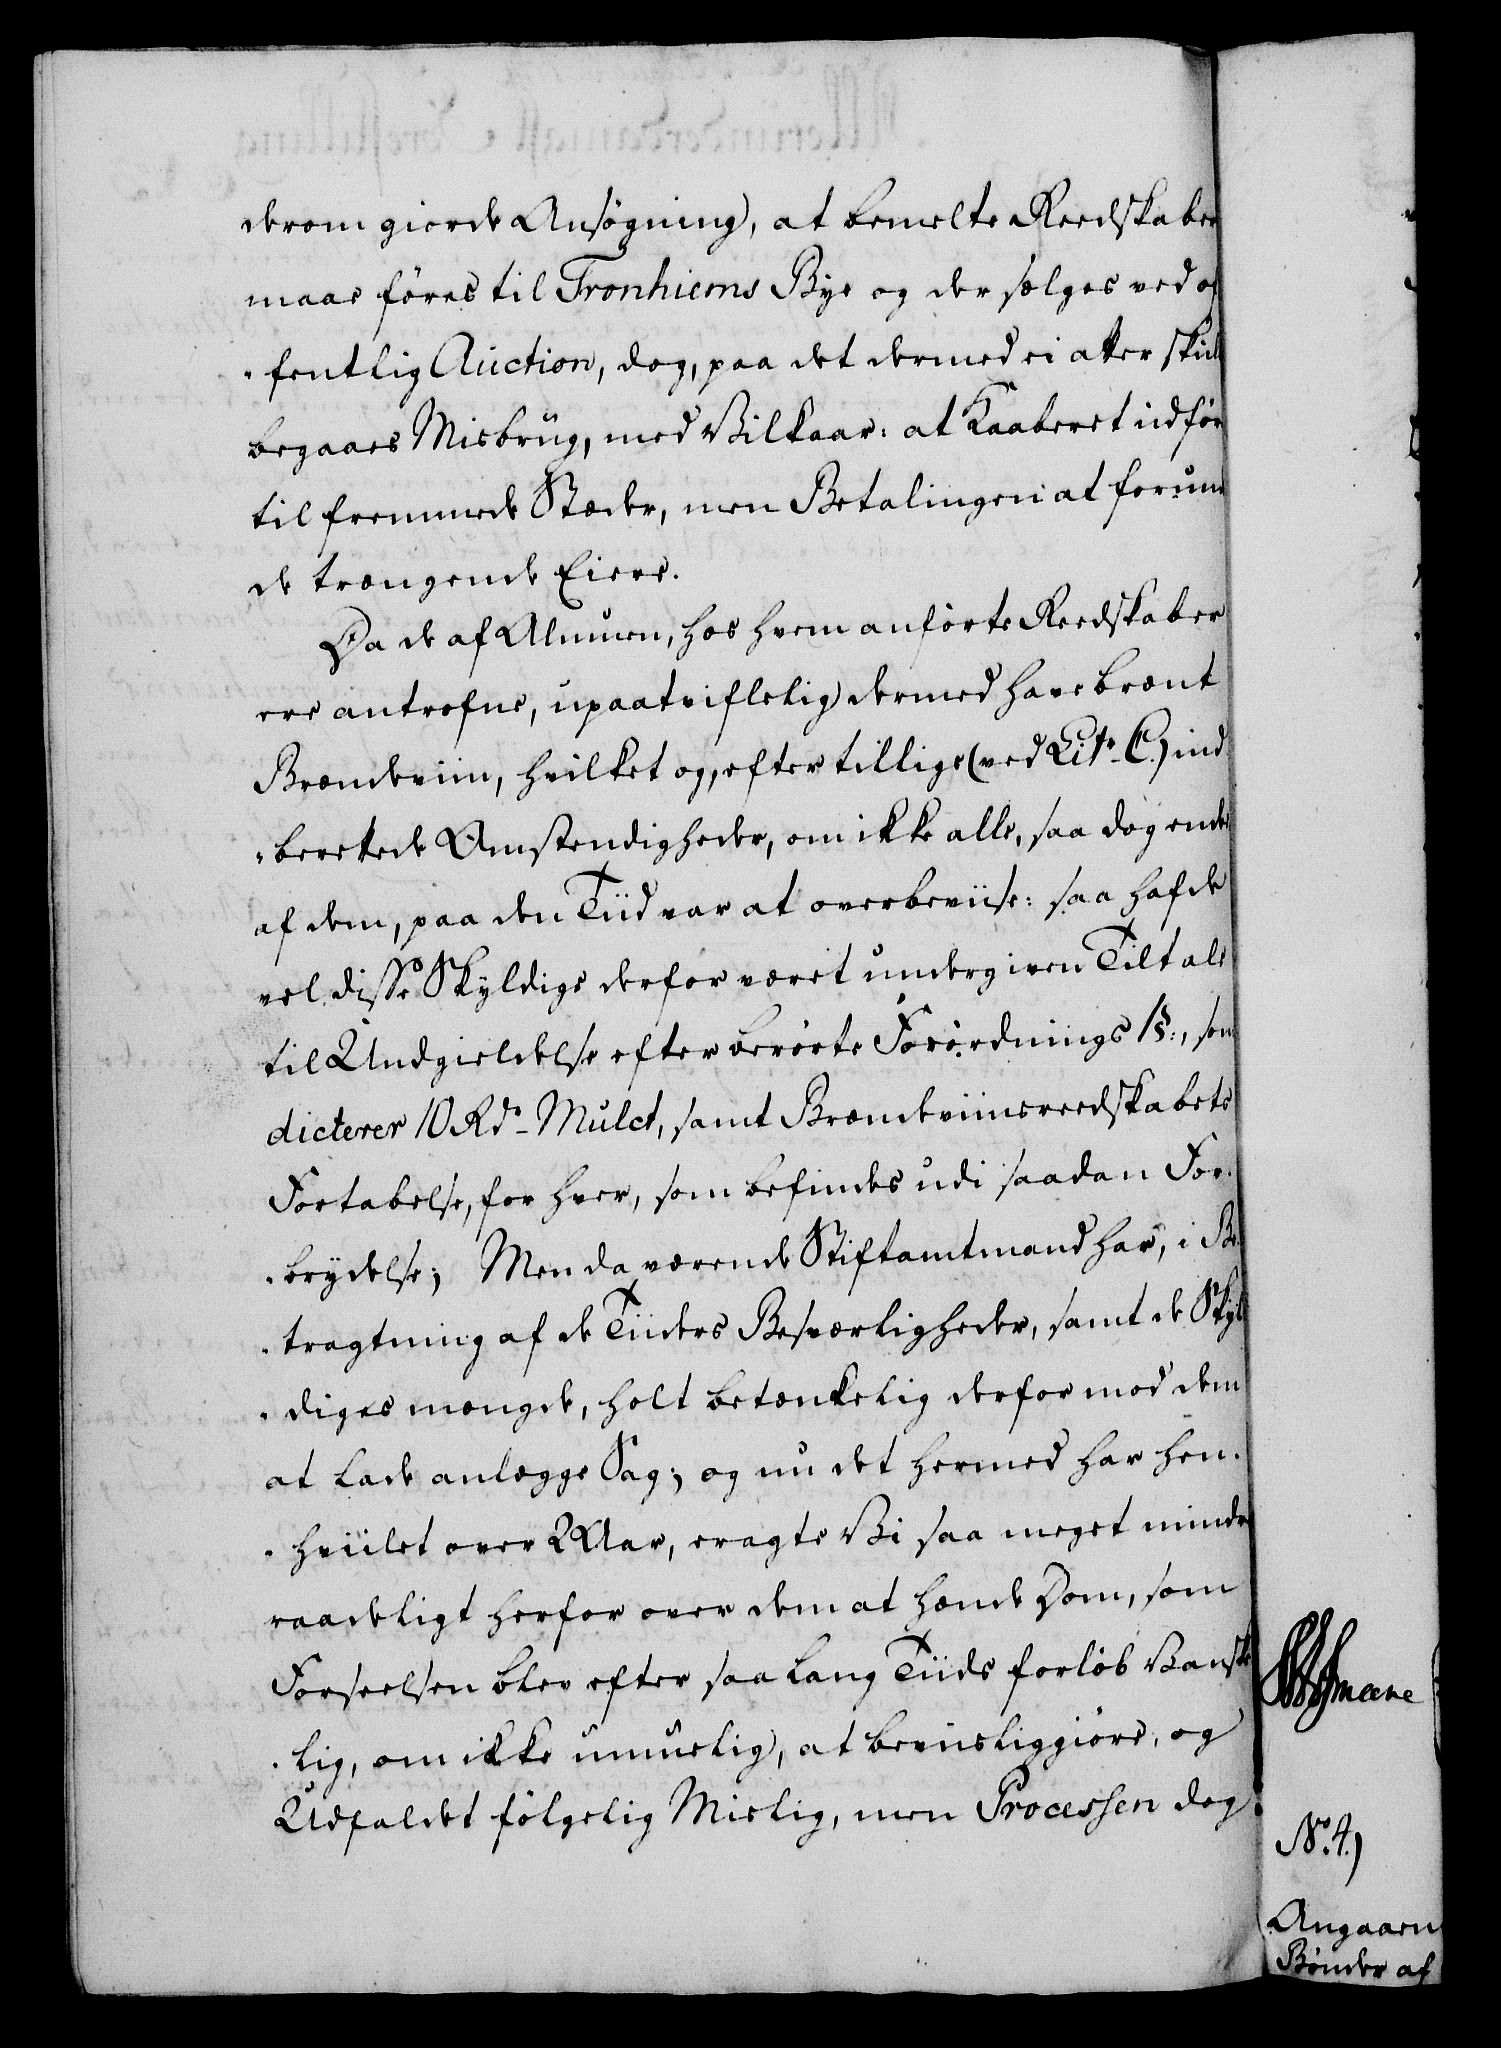 derom giorde Ansøgning, at bemelte Reedskaber
maae føres til Tronhiems Bye og der sælges ved of
fentlig Auction, dog, paa det dermed ei atter skul
begaaes Misbrug, med Vilkaar: at Kaaberet udfør
til fremmede Stæder, men Betalingen at forund
de trængende Eiere.
Da de af Almuen, hos hvem anførte Reedskaber
ere antrofne, upaatvifletlig dermed have brænt
Brændeviin, hvilket og, efter tillige (ved Litr. C.) ind
berettede Omstendigheder, om ikke alle, saa dog endel
af dem, paa den Tiid var at overbeviise: saa hafde
vel disse Skyldige derfor været undergiven Tiltale
til Undgieldelse efter berørte Forordnings 1§:, som
dicterer 10 Rdr. Mulct, samt Brændeviinsreedskabets
Fortabelse, for hver, som befindes udi saadan For-
brydelse; Men da værende Stiftamtmand har, i Be
tragtning af de Tiiders Besværligheder, samt de Skyl
diges mængde, holt betænkelig derfor mod dem
at lade anlægge Sag; og nu det hermed har hen-
hviilet over 2 Aar, eragte Vi saa meget mindre
raadeligt herfor over dem at hænde Dom, som
Forseelsen blev efter saa lang Tiids forløb Vanske
lig, om ikke umuelig, at beviisliggiøre, og
Udfaldet følgelig Mislig, men Processen dog
No. 4.)
Angaaen
Bønder af